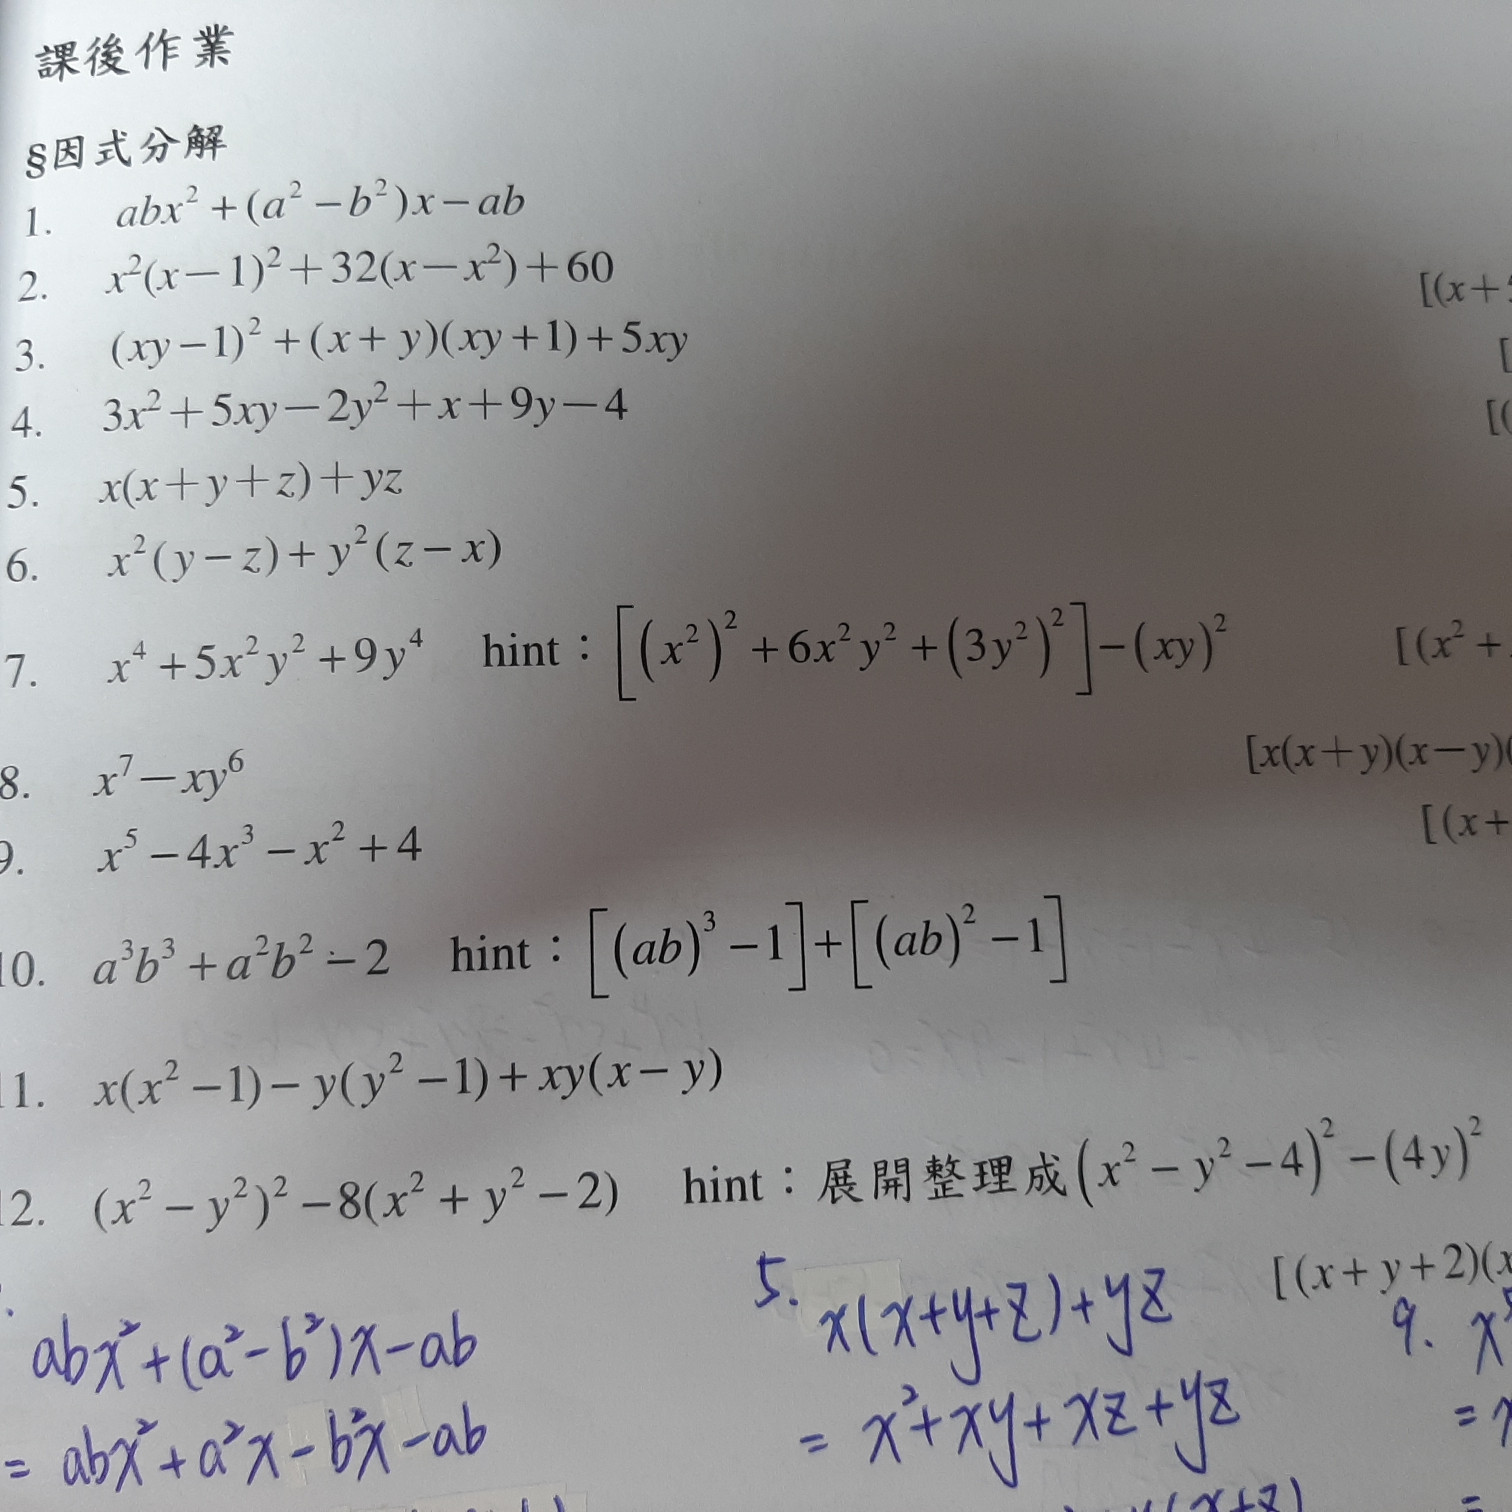 課後作業
§因式分解
1. abx² + (a² − b²)x − ab
2. x²(x − 1)² + 32(x − x²) + 60
[(x+
3. (xy − 1)² + (x + y)(xy + 1) + 5xy
[
4. 3x² + 5xy − 2y² + x + 9y − 4
[(
5. x(x + y + z) + yz
6. x²(y − z) + y²(z − x)
7. x⁴ + 5x²y² + 9y⁴ hint：[(x²)² + 6x²y² + (3y²)²] − (xy)² [(x² +
8. x⁷ − xy⁶ [x(x + y)(x − y)(
9. x⁵ − 4x³ − x² + 4 [(x+
10. a³b³ + a²b² − 2 hint：[(ab)³ − 1] + [(ab)² − 1]
11. x(x² − 1) − y(y² − 1) + xy(x − y)
12. (x² − y²)² − 8(x² + y² − 2) hint：展開整理成(x² − y² − 4)² − (4y)²
[(x + y + 2)(x
abx² + (a² − b²)x − ab
= abx² + a²x − b²x − ab
5. x(x+y+z)+yz
= x² + xy + xz + yz
(x+z)
9. x
= x
=